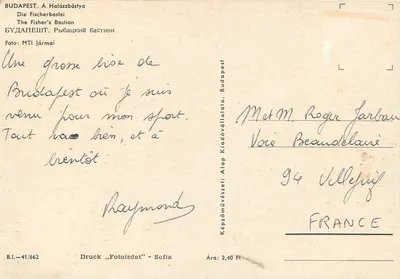 BUDAPEST. A Halászbástya
Die Fischerbastei
The Fisher's Bastion
БУДАПЕШТ. Рыбацкий бастион
Foto: MTI Jármai
Une grosse bise de
Budapest où je suis
venu pour mon sport.
Tout va bien, et à
bientôt
Raymond
B.I.—41/662
Druck „Fotoizdat" – Sofia
Képzőművészeti Alap Kiadóvállalata, Budapest
Ára: 2,40 Ft
M et M. Roger
Voie Beaudelaire
94 Villejuif
FRANCE